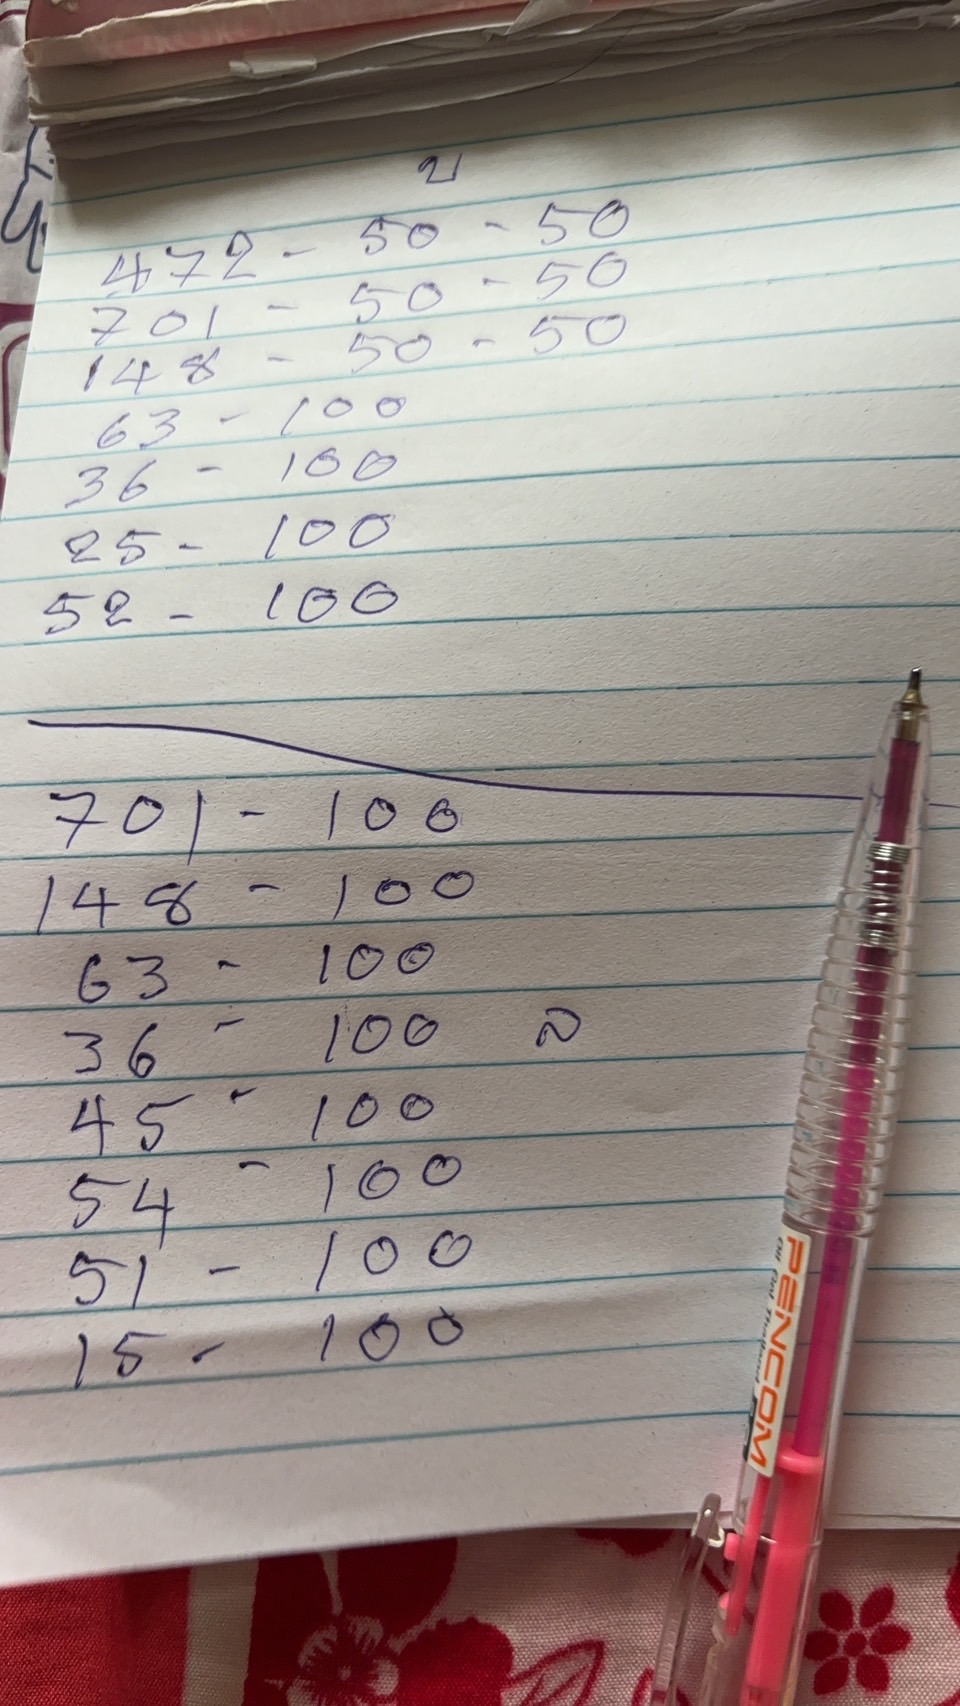 บ
472 - 50 - 50
701 - 50 - 50
148 - 50 - 50
63 - 100
36 - 100
25 - 100
52 - 100
701 - 100
148 - 100
63 - 100
36 - 100 ล
45 - 100
54 - 100
51 - 100
15 - 100
PENCOM